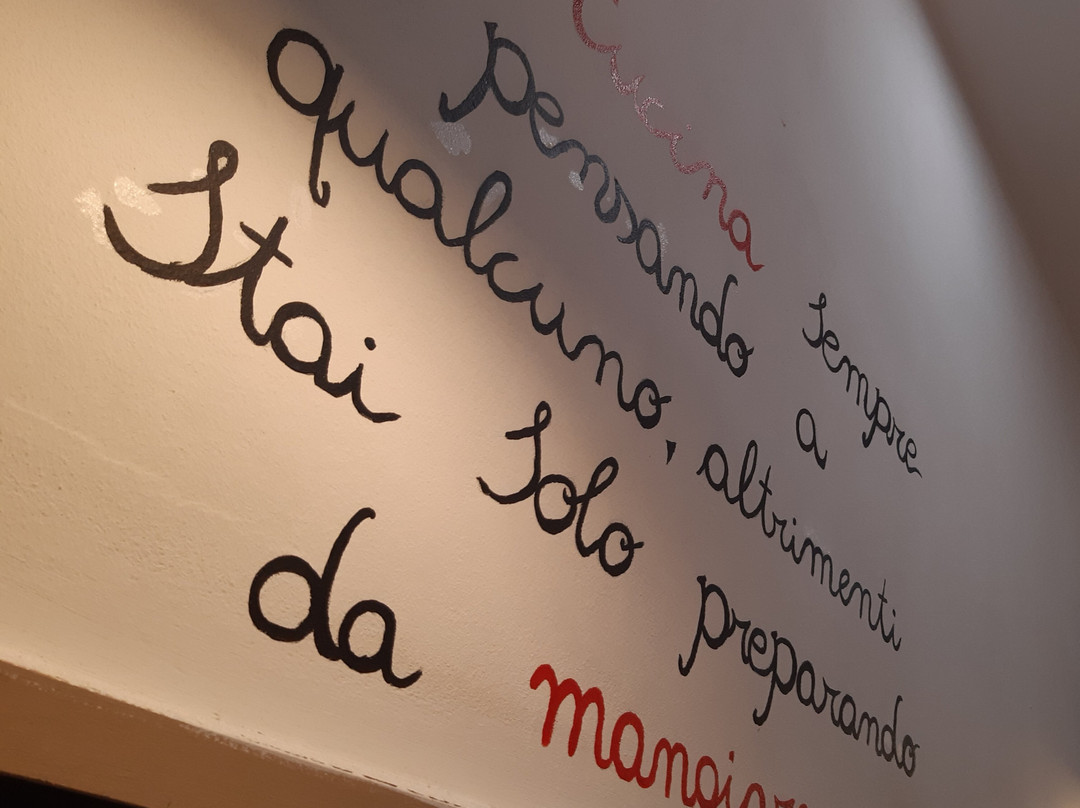 Cucina Sempre
pensando a
qualcuno, altrimenti
Stai Solo preparando
da mangiar